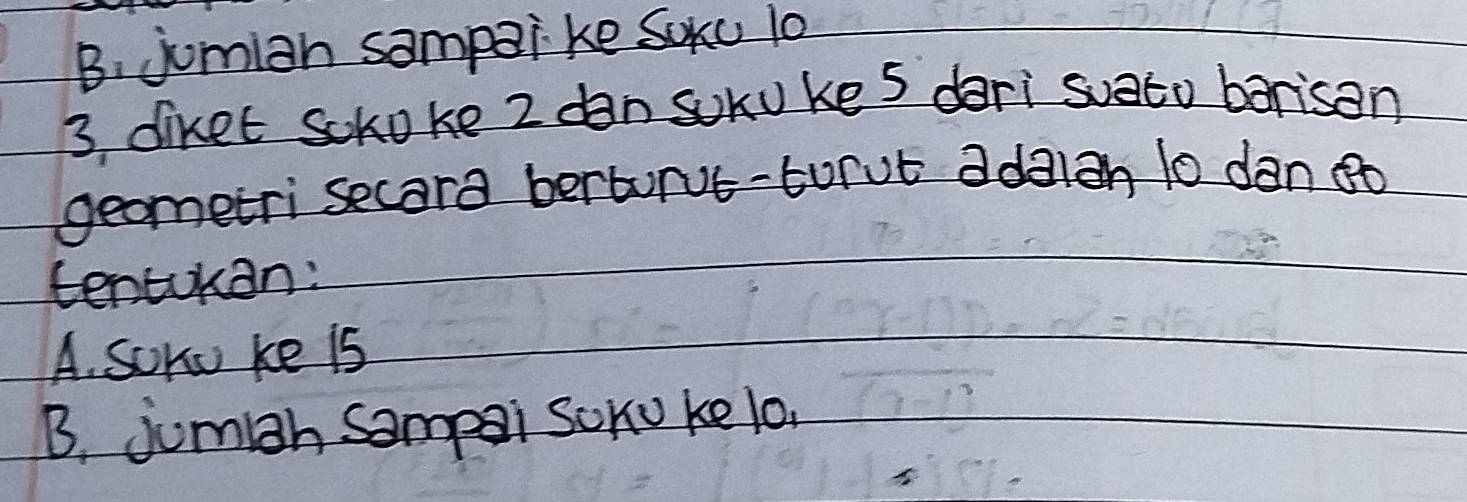 B. jumlah sampai ke suku 10
3. diket suku ke 2 dan suku ke 5 dari suatu barisan
geometri secara berturut-turut adalah 10 dan 80
tentukan:
A. suku ke 15
B. jumlah sampai suku ke 10.